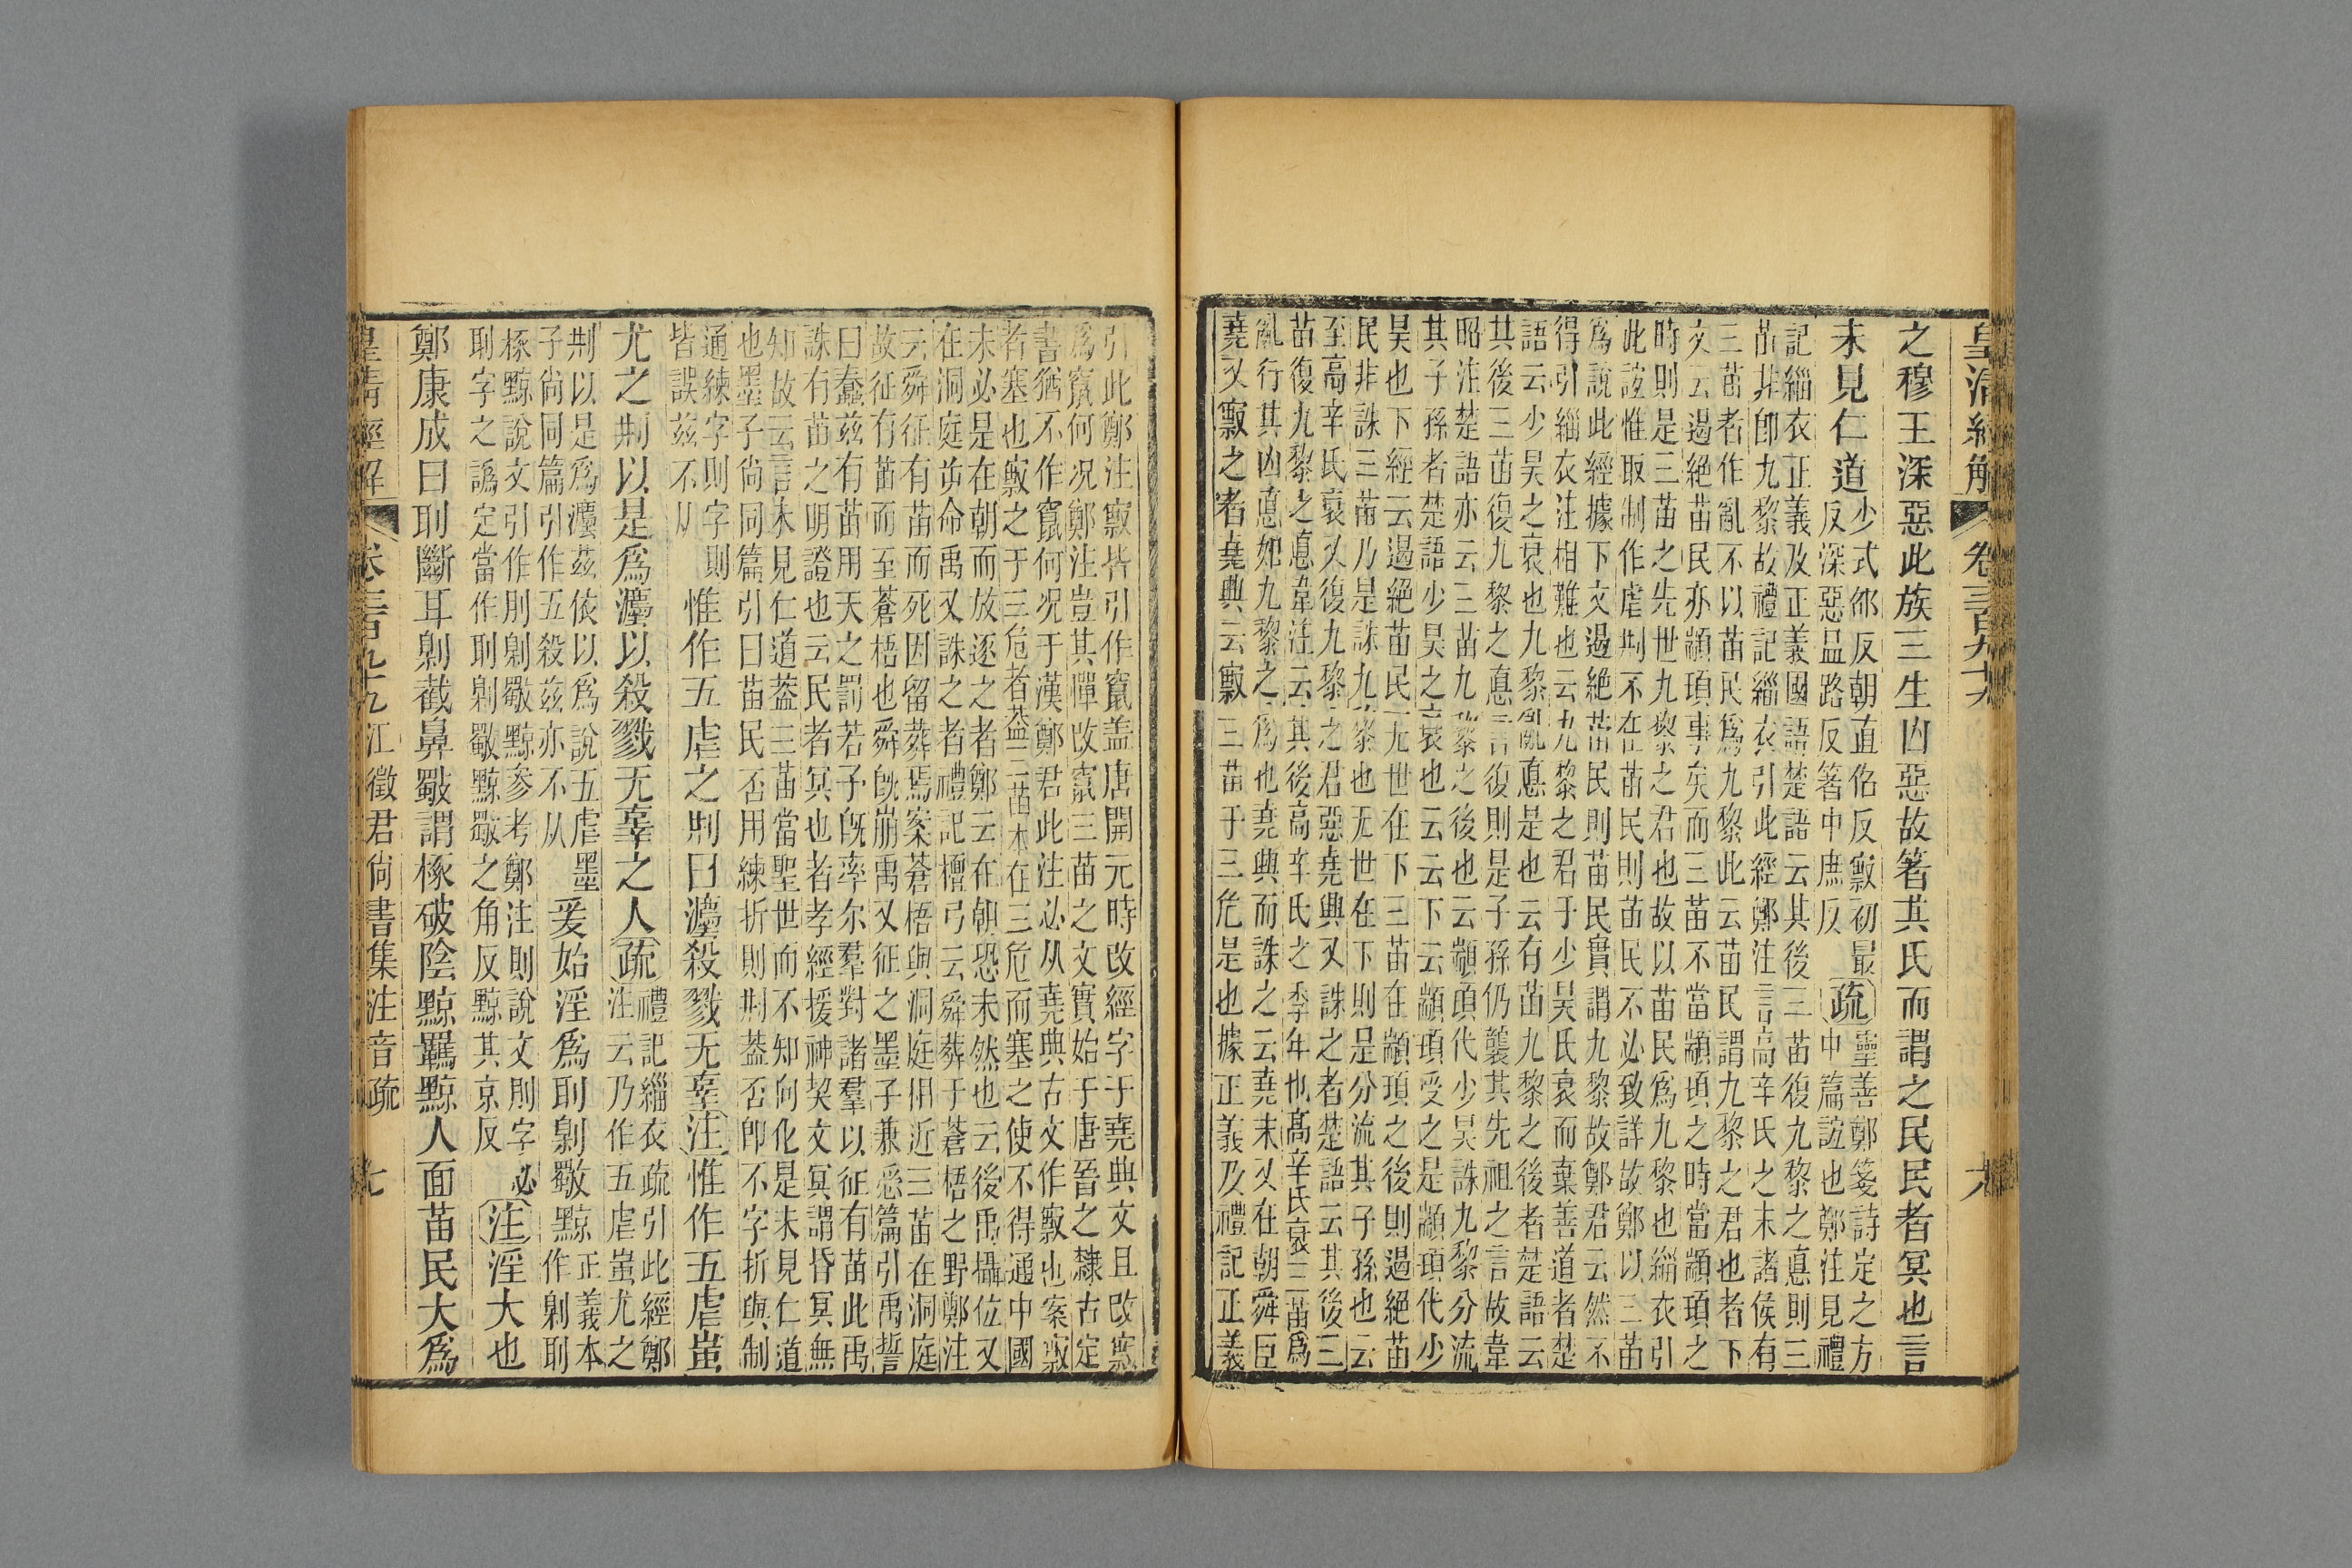 皇清經解 卷三百九十九 六
之穆王深惡此族三生凶惡故箸其氏而謂之民民者冥也言
未見仁道
少式邵反朝直佋反㝮初最
反深惡㬀路反箸中庶反
疏
靈善鄭箋詩定之方
中篇誼也鄭注見禮
記緇衣正義及正義國語楚語云其後三苗復九黎之悳則三
苗非卽九黎故禮記緇衣引此經鄭注言高辛氏之末諸侯有
三苗者作亂不以苗民爲九黎此云苗民謂九黎之君也者下
文云遏絕苗民亦顓頊事矣而三苗不當顓頊之時當顓頊之
時則是三苗之先世九黎之君也故以苗民爲九黎也緇衣引
此誼惟取制作虐㓝不在苗民則苗民不必致詳故鄭以三苗
爲說此經據下文遏絕苗民則苗民實謂九黎故鄭君云然不
得引緇衣注相難也云九黎之君于少昊氏衰而棄善道者楚
語云少昊之衰也九黎亂悳是也云有苗九黎之後者楚語云
其後三苗復九黎之悳言復則是子孫仍襲其先祖之言故韋
昭注楚語亦云三苗九黎之後也云顓頊代少昊誅九黎分流
其子孫者楚語少昊之衰也云云下云顓頊受之是顓頊代少
昊也下經云遏絕苗民无世在下三苗在顓頊之後則遏絕苗
民非誅三苗乃是誅九黎也无世在下則是分流其子孫也云
至高辛氏衰又復九黎之君惡堯興又誅之者楚語云其後三
苗復九黎之悳韋注云其後高辛氏之季年也高辛氏衰三苗爲
亂行其凶悳如九黎之爲也堯興而誅之云堯末又在朝舜臣
堯又㝮之者堯典云㝮三苗于三危是也據正義及禮記正義
引此鄭注㝮皆引作竄盖唐開元時改經字于堯典文且改㝮
爲竄何況鄭注豈其憚改㝮三苗之文實始于唐晉之隸古定
書猶不作竄何況于漢鄭君此注必从堯典古文作㝮也案㝮
者塞也㝮之于三危者葢三苗本在三危而塞之使不得通中國
未必是在朝而放逐之者鄭云在朝恐未然也云後禹攝位又
在洞庭㫄命禹又誅之者禮記檀弓云舜葬于蒼梧之野鄭注
云舜征有苗而死因留葬焉案蒼梧與洞庭相近三苗在洞庭
故征有苗而至蒼梧也舜旣崩禹又征之墨子兼㤅篇引禹誓
曰蠢茲有苗用天之罰若予旣率尔羣對諸羣以征有苗此禹
誅有苗之明證也云民者冥也者孝經援神契文冥謂昏冥無
知故云言未見仁道葢三苗當聖世而不知向化是未見仁道
也墨子尙同篇引曰苗民否用練折則㓝葢否卽不字折與制
通練字則字則
皆誤茲不从
惟作五虐之㓝曰灋殺戮无辜
注
惟作五虐蚩
尤之㓝以是爲灋以殺戮无辜之人
疏
禮記緇衣疏引此經鄭
注云乃作五虐蚩尤之
㓝以是爲灋茲依以爲說五虐墨
子尙同篇引作五殺茲亦不从
爰始淫爲刵劓斀黥
正義本
作劓刵
椓黥說文引作刖劓斀黥參考鄭注則說文則字必
刵字之譌定當作刵劓斀黥斀之角反黥其京反
注
淫大也
鄭康成曰刵斷耳劓截鼻斀謂椓破陰黥羈黥人面苗民大爲
皇清經解 卷三百九十九江徵君尙書集注音疏 七